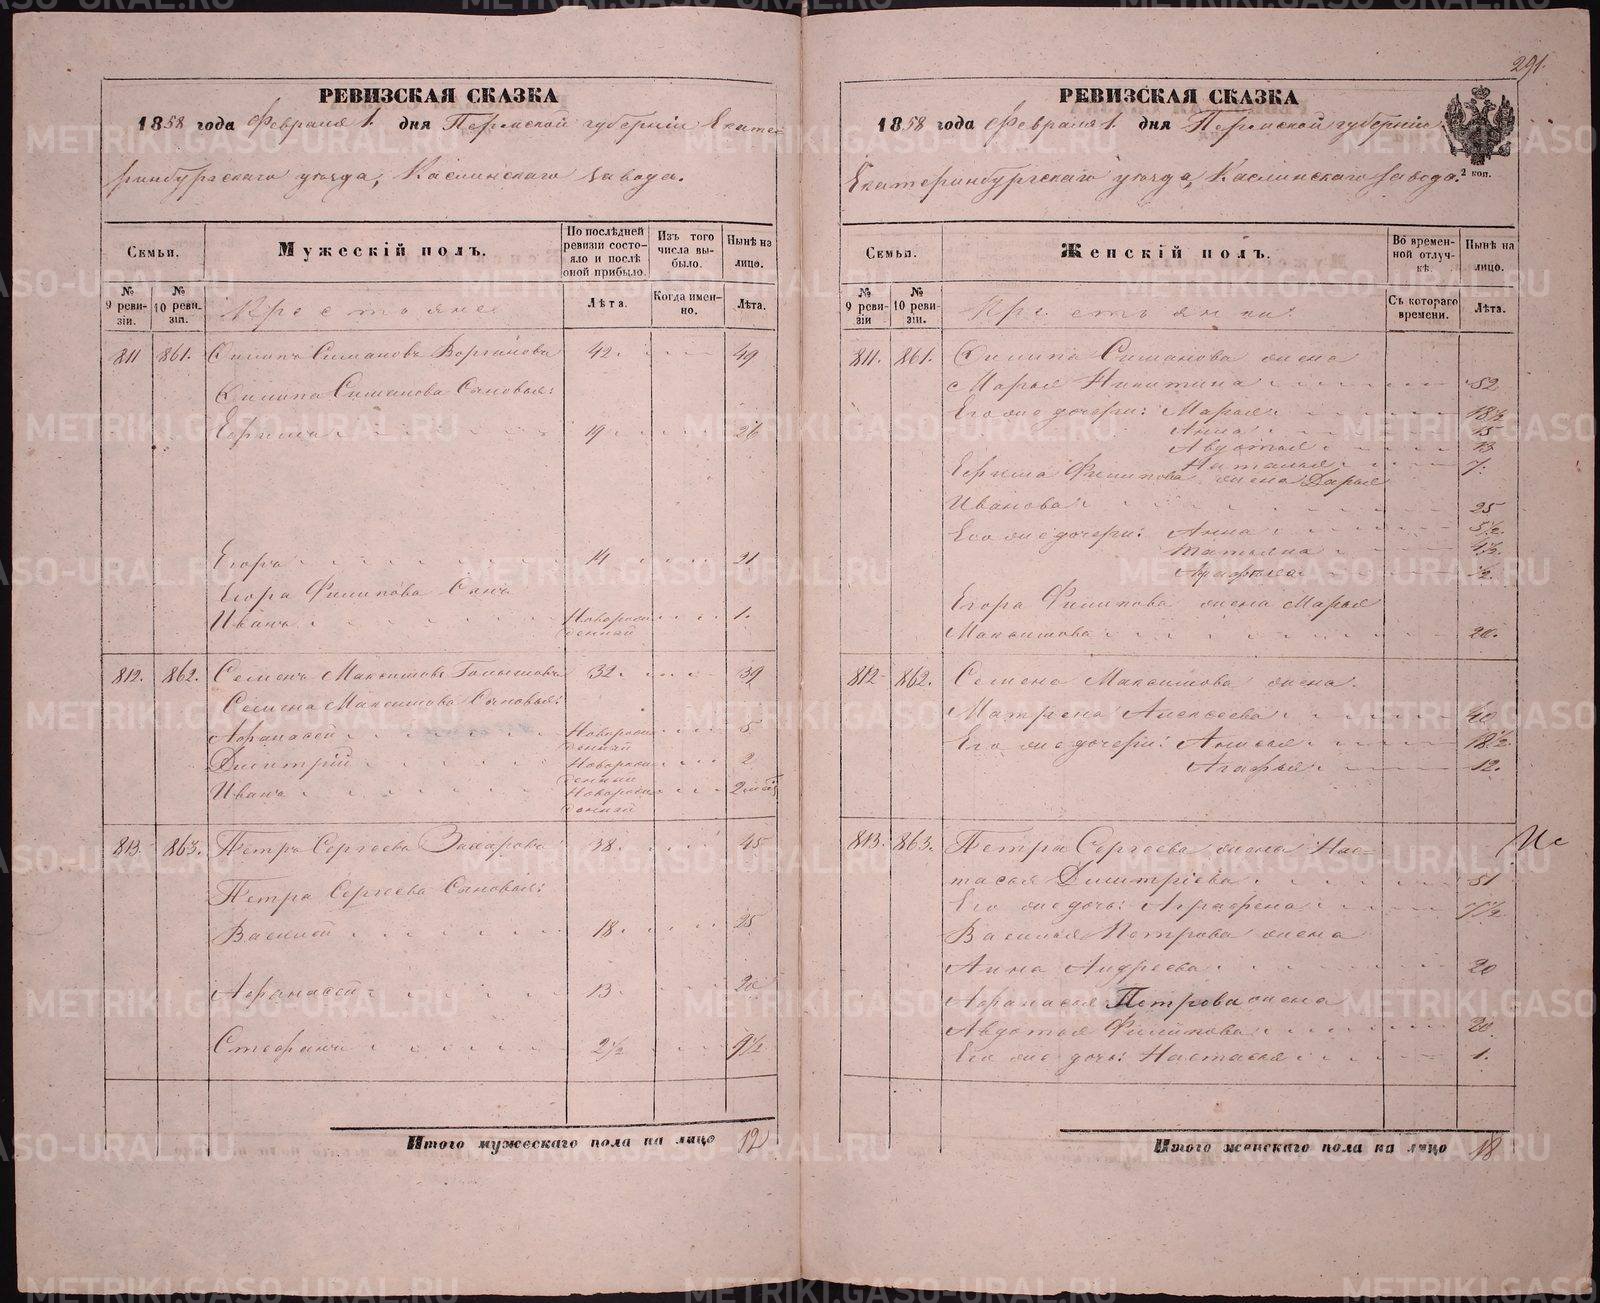 291.
РЕВИЗСКАЯ СКАЗКА
1858 года Февраля 1. дня Пермской губерніи Екате-
ринбургскаго уѣзда, Каслинскаго завода.
Семьи.
Мужескій полъ.
По послѣдней ревизіи состояло и послѣ оной прибыло.
Изъ того числа выбыло.
Нынѣ на лицо.
№ 9 ревизіи.
№ 10 ревизіи.
Крестьяне
Лѣта.
Когда именно.
Лѣта.
811 861. Филипъ Симановъ 42. 49
Филипа Симанова Сыновья:
Ефимъ 19 26
Егоръ 14 21
Егора Филипова Сынъ
Иванъ Новорожденный 1.
812. 862. Семенъ Максимовъ 32. 39
Семена Максимова Сыновья:
Афанасей Новорожденный 5
Дмитрій Новорожденный 2
Иванъ Новорожденный 2 мѣс
813. 863. Петръ Сергеевъ Захаровъ 38. 45
Петра Сергеева Сыновья:
Василей 18. 25
Афанасей 13. 20
Стефанъ 2½ 9½
Итого мужескаго пола на лицо 12
РЕВИЗСКАЯ СКАЗКА
1858 года Февраля 1. дня Пермской губерніи
Екатеринбургскаго уѣзда, Каслинскаго завода.
2 коп.
Семьи.
Женскій полъ.
Во временной отлучкѣ.
Нынѣ на лицо.
№ 9 ревизіи
№ 10 ревизіи.
Крестьянки
Съ котораго времени.
Лѣта.
811. 861. Филипа Симанова жена
Марья Никитина 52
Его же дочери: Марья 18½
Анна 15
Авдотья 13
Наталья 7.
Ефима Филипова жена Дарья
Иванова 25
Его же дочери: Анна 5½
Татьяна 4½
½
Егора Филипова жена Марья
Максимова 20.
812 862. Семена Максимова жена
Матрена Алексеева 40
Его же дочери: 18½
Агафья 12.
813. 863. Петра Сергеева жена Нас-
тасья Дмитріева 51
Его же дочь: Аграфена 7½
Василья Петрова жена
Анна Андреева 20
Афанасья Петрова жена
Авдотья Филипова 20
Его же дочь: Настасья 1.
Итого женскаго пола на лицо 18
METRIKI.GASO-URAL.RU